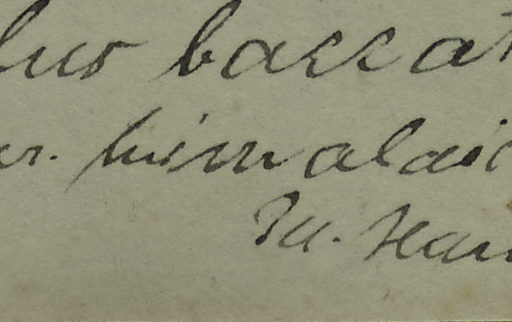 lus baccat
ar. himalaic
M. Han